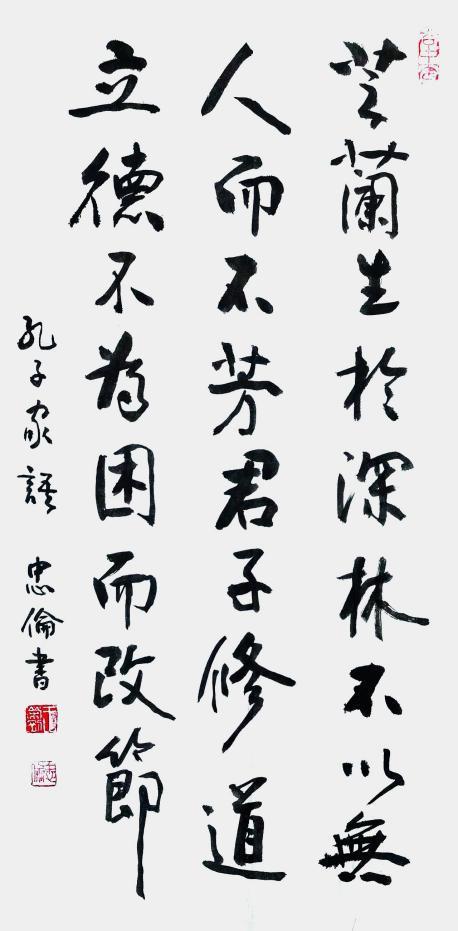 芝蘭生於深林不以無
人而不芳君子修道
立德不為困而改節
孔子家語 忠倫書